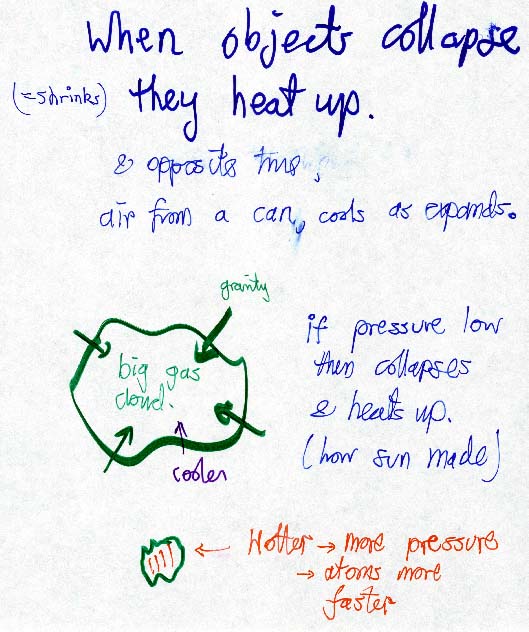 When objects collapse
(=shrinks) they heat up.
& opposite true,
air from a can, cools as expands.
gravity
big gas
cloud.
cooler
if pressure low
then collapses
& heats up.
(how sun made)
Hotter → more pressure
→ atoms more
faster